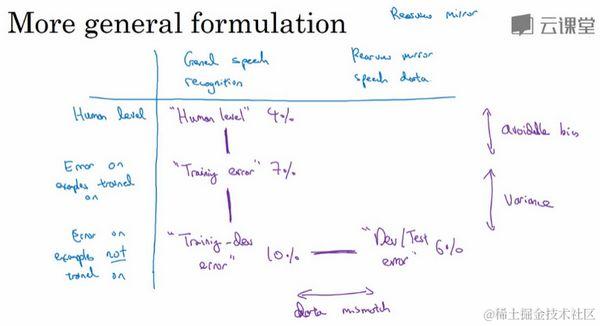 More general formulation
Rearview mirror
云课堂
General speech
recognition
Rearview mirror
speech data
Human level
"Human level" 4%
avoidable bias
Error on
examples trained
on
"Training error" 7%
Variance
Error on
examples not
trained on
"Training-dev
error" 10%
"Dev/Test
error" 6%
data mismatch
@稀土掘金技术社区